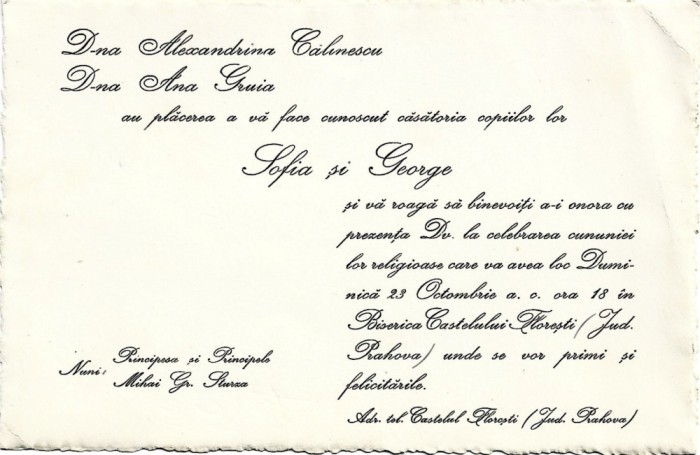 D-na Alexandrina Călinescu
D-na Ana Gruia
au plăcerea a vă face cunoscut căsătoria copiilor lor
Sofia și George
și vă roagă să binevoiți a-i onora cu
prezența Dv. la celebrarea cununiei
lor religioase care va avea loc Dumi-
nică 23 Octombrie a. c. ora 18 în
Biserica Castelului Florești (Jud.
Prahova) unde se vor primi și
felicitările.
Nuni: Principesa și Principele
Mihai Gr. Sturza
Adr. tel. Castelul Florești (Jud. Prahova)